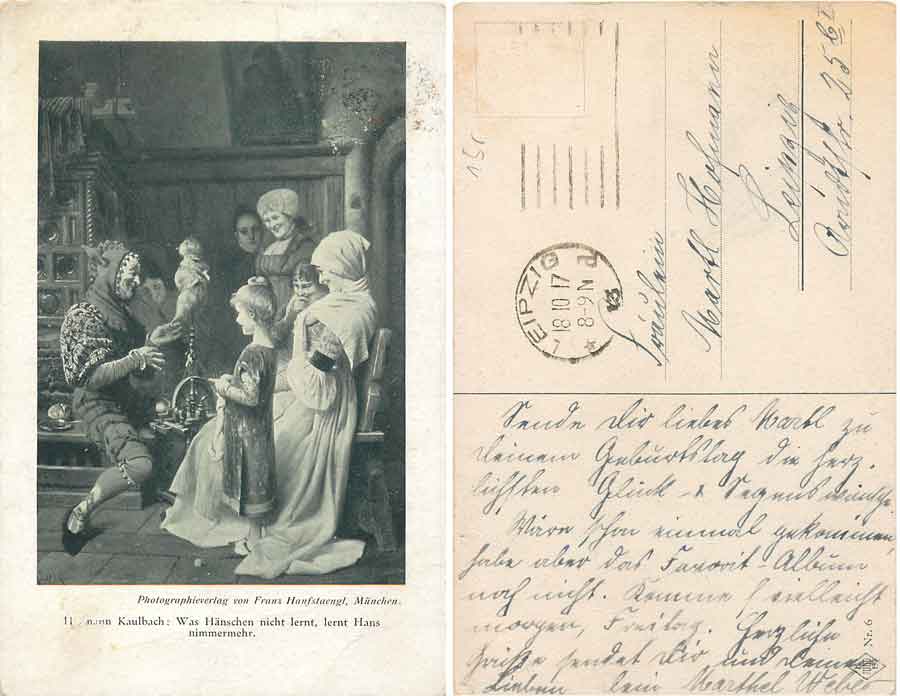 Photographieverlag von Franz Hanfstaengl, München.
mann Kaulbach: Was Hänschen nicht lernt, lernt Hans
nimmermehr.
LEIPZIG
18.10.17
8-9N
13
d
Fräulein
Martl Hofmann
Leipzig
Sende Dir liebes Martl zu
Deinem Geburtstag die herz-
lichsten Glück- & Segenswünsche.
Wäre schon einmal gekommen,
habe aber das Favorit-Album
noch nicht. Komme vielleicht
morgen, Freitag. Herzliche
Grüße sendet Dir und Deinen
Lieben Marthel
Nr. 6